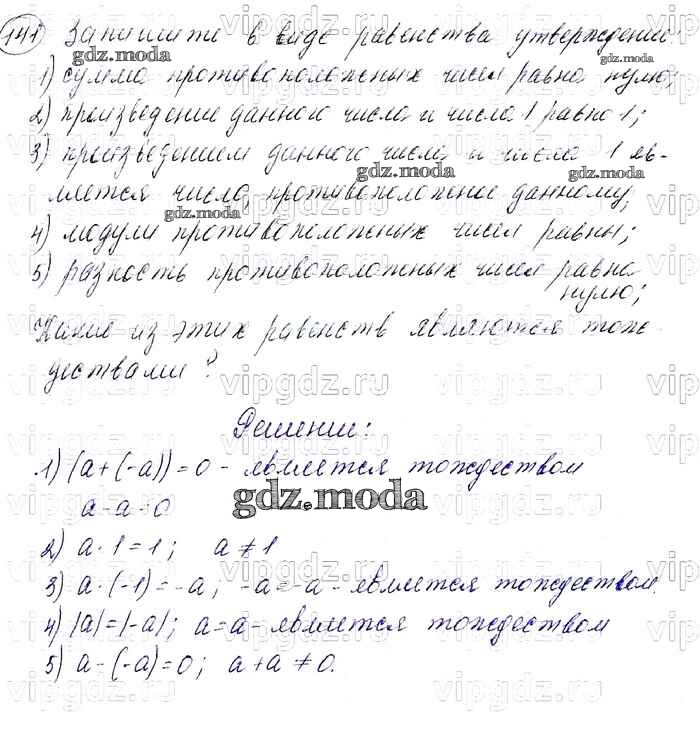 141 Запишите в виде равенства утверждение:
1) сумма противоположных чисел равна нулю;
2) произведение данного числа и числа 1 равно 1;
3) произведением данного числа и числа 1 яв-
ляется число, противоположное данному;
4) модули противоположных чисел равны;
5) разность противоположных чисел равна
нулю;
Какие из этих равенств являются тож-
дествами?
Решение:
1) (a+(-a))=0 - является тождеством
a-a=0
2) a·1=1; a≠1
3) a·(-1)=-a; -a=-a - является тождеством.
4) |a|=|-a|; a=a - является тождеством
5) a-(-a)=0; a+a≠0.
gdz.moda
gdz.moda
gdz.moda
gdz.moda
gdz.moda
gdz.moda
vipgdz.ru